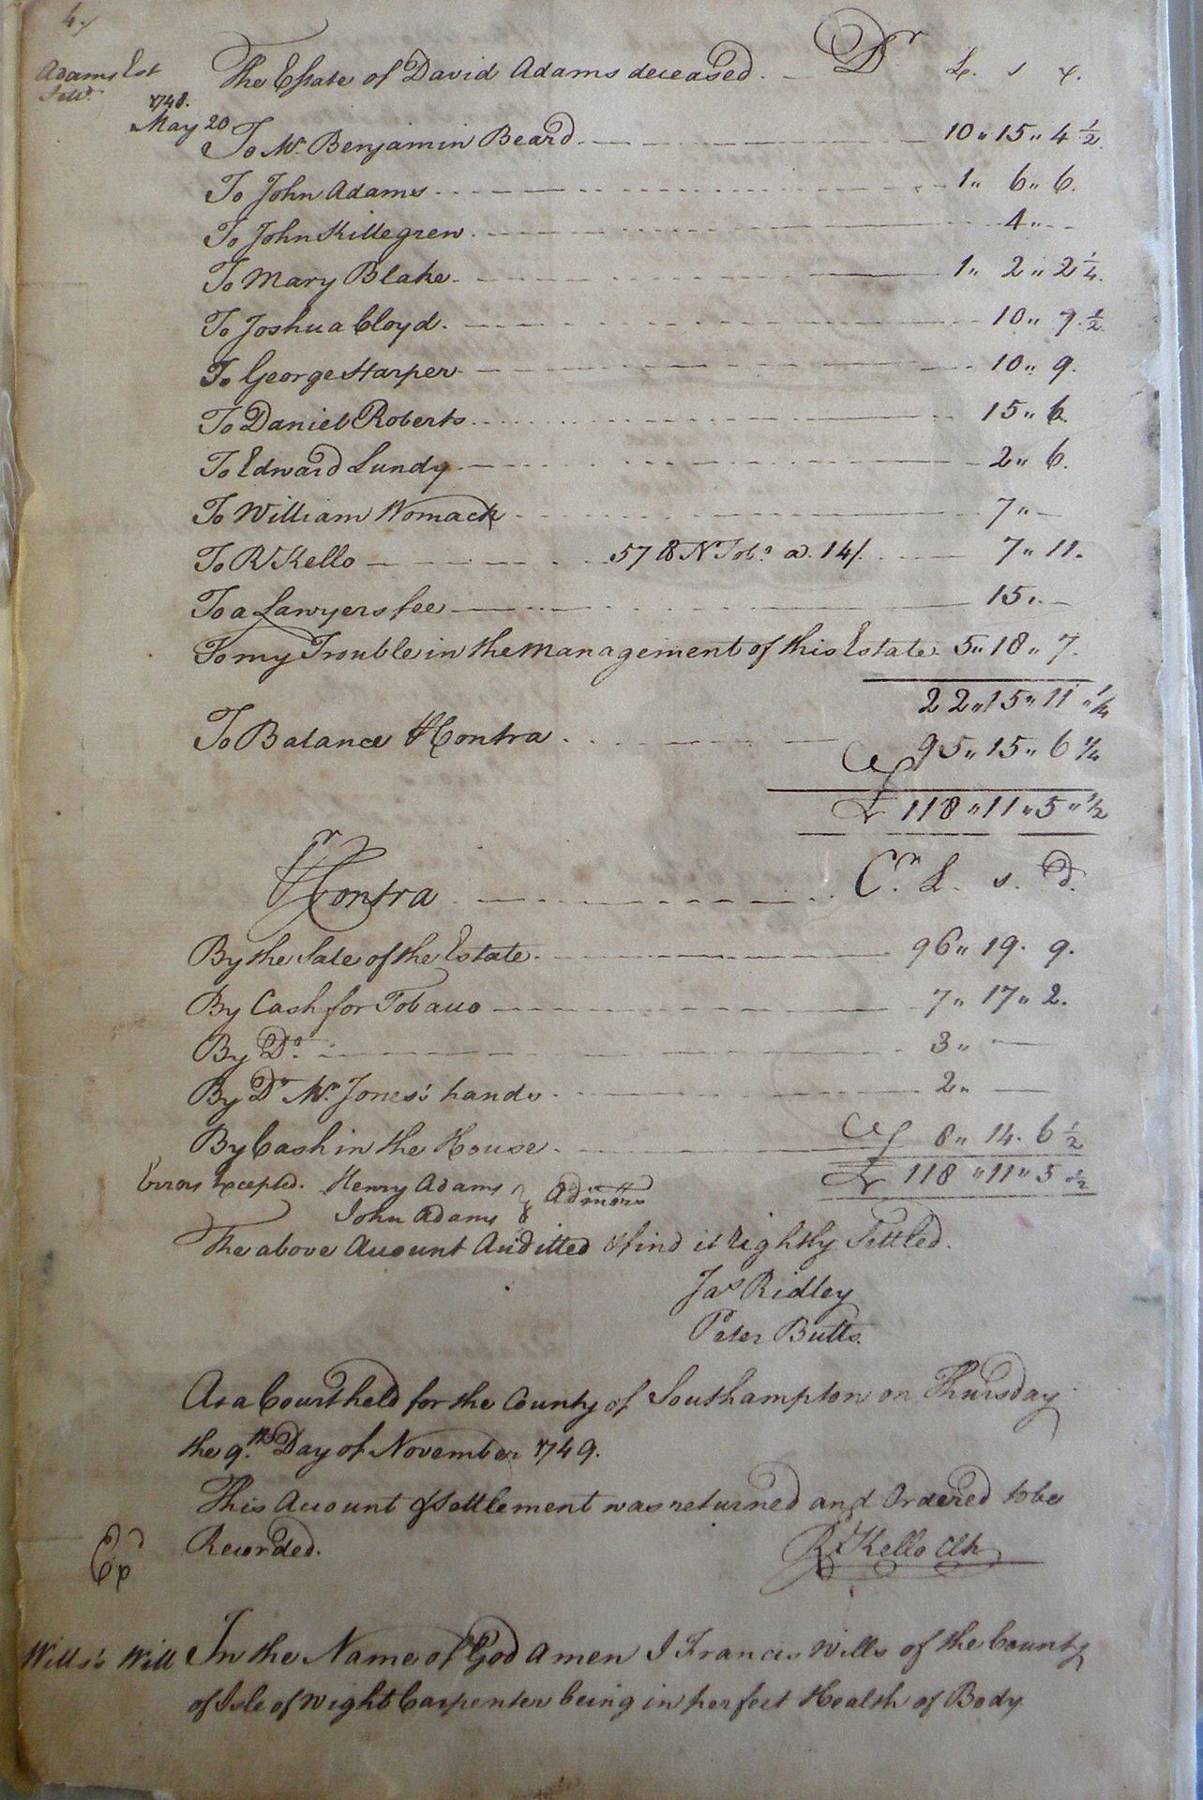 4
Adams Est
The Estate of David Adams deceased. Dr £. s d.
1748.
May 20 To Mr. Benjamin Beard 10 " 15 " 4 1/2
To John Adams 1 " 6 " 6
To John Killegrew 4 " -
To Mary Blake 1 " 2 " 2 1/4
To Joshua Cloyd 10 " 9 1/2
To George Harper 10 " 9.
To Daniel Roberts 15 " 6
To Edward Lundy 2 " 6.
To William Womack 7 " -
To Rd Kello 57 lb N Tobo. a 14/. 7 " 11.
To a Lawyers fee 15 " -
To my Trouble in the Management of this Estate 5 " 18 " 7.
22 " 15 " 11 " 1/4
To Balance Pr Contra 95 " 15 " 6 1/4
£ 118 " 11 " 5 " 1/2
Pr Contra Cr. £. s. d.
By the Sale of the Estate 96 " 19. 9.
By Cash for Tobacco 7 " 17 " 2.
By Do. 3 " -
By Do Mr. Jones's hands 2 " -
By Cash in the House 8 " 14. 6 1/2
£ 118 " 11 " 5 1/2
Errors Excepted. Henry Adams
John Adams } Admors
The above Account Auditted & find it rightly Settled.
Jas Ridley
Peter Butts.
At a Court held for the County of Southampton on Thursday
the 9th. Day of November 1749.
This Account of Settlement was returned and Ordered to be
Recorded.
Exd
Rd Kello Clk
Wills's Will In the Name of God Amen I Francis Wills of the County
of Isle of Wight Carpenter being in perfect Health of Body